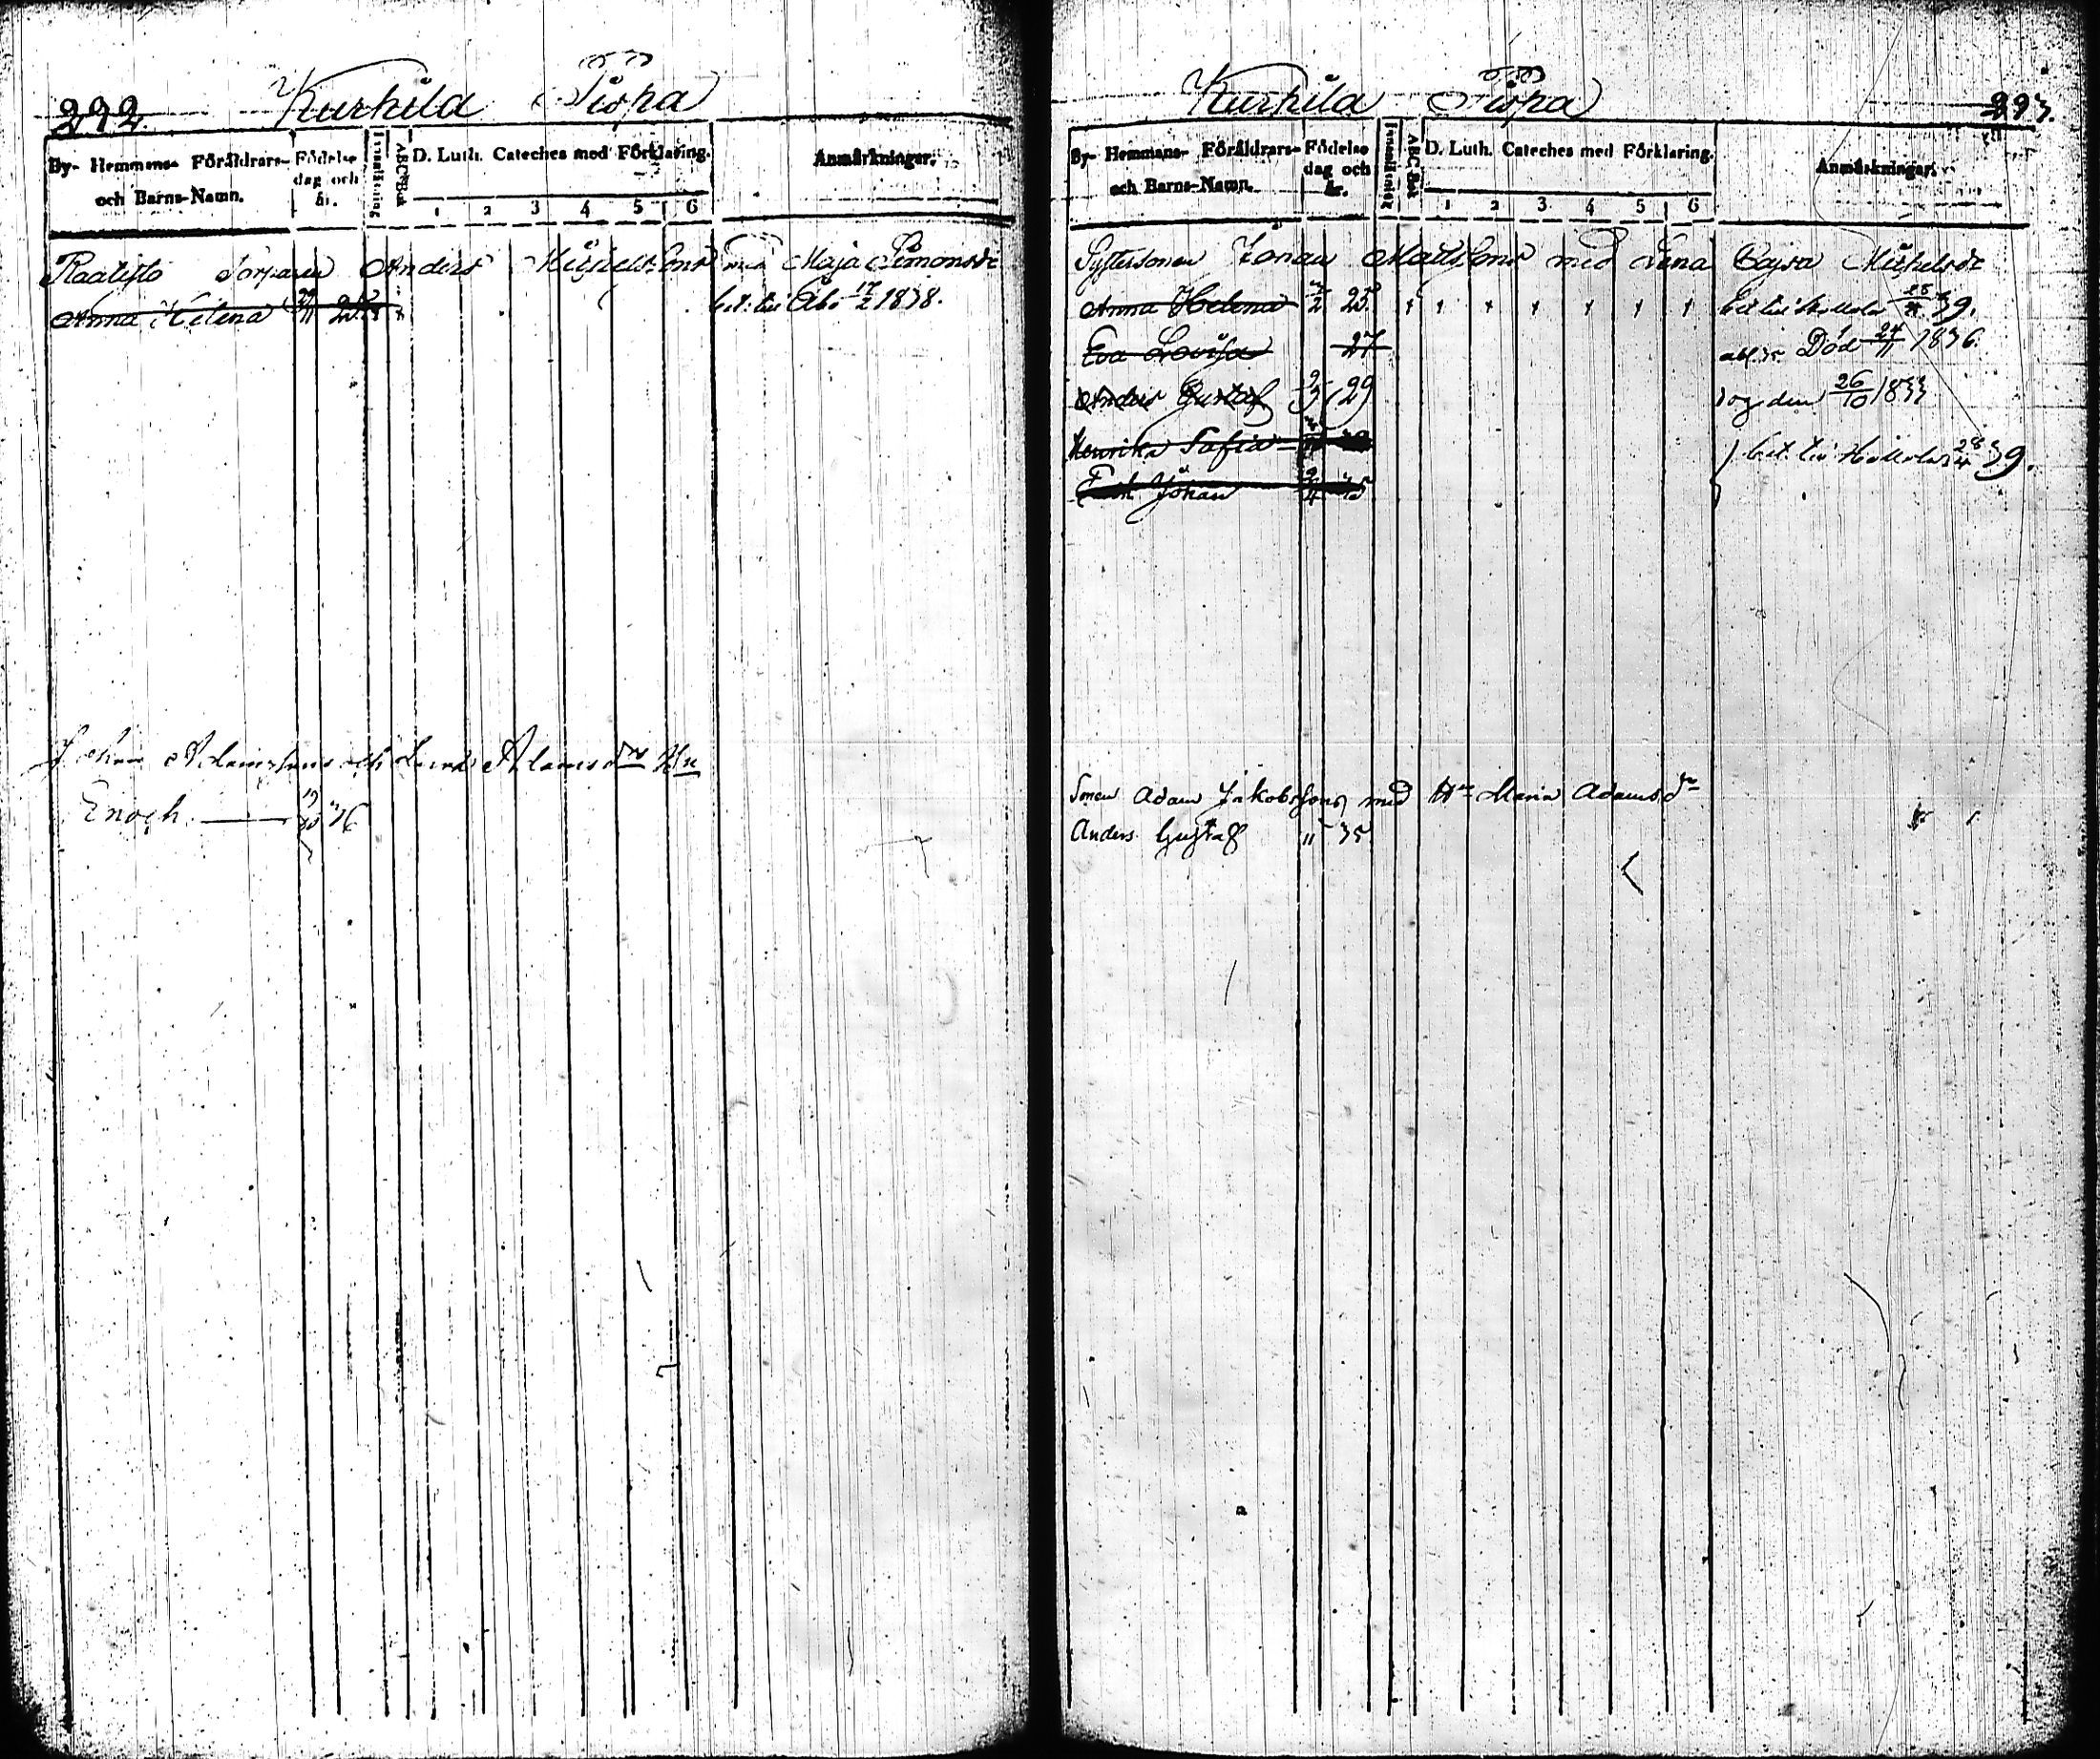 292.
Kurhila Tiopa
By- Hemmans- Föräldrars- och Barns-Namn.
Födelse dag och år.
Innanläsning
ABC-Bok
D. Luth. Cateches med Förklaring.
1 2 3 4 5 6
Anmärkningar.
Torparen Anders Michelsson med Maja Simonsdr
Anna Helena 11 25
bet. till Åbo 17/2 1838.
Adamsson och Adamsdrs
Enoch 36
Kurhila Tiopa
293.
By- Hemmans- Föräldrars- och Barns-Namn.
Födelse dag och år.
Innanläsning
ABC-Bok
D. Luth. Cateches med Förklaring.
1 2 3 4 5 6
Anmärkningar.
Sytterssonen Johan Matsson med Lena Cajsa Michelsdr
Anna Helena 25 bet till Hollola 39.
Eva Lovisa 27 Död 24/11 1836.
Anders Gustaf 9 29 dog den 26/10 1833
Henrika Sofia
Johan 35 bet. till Hollola 28/4 39.
Sonen Adam Jakobsson med Hu Maria Adamsdr
Anders Gustaf 11 35